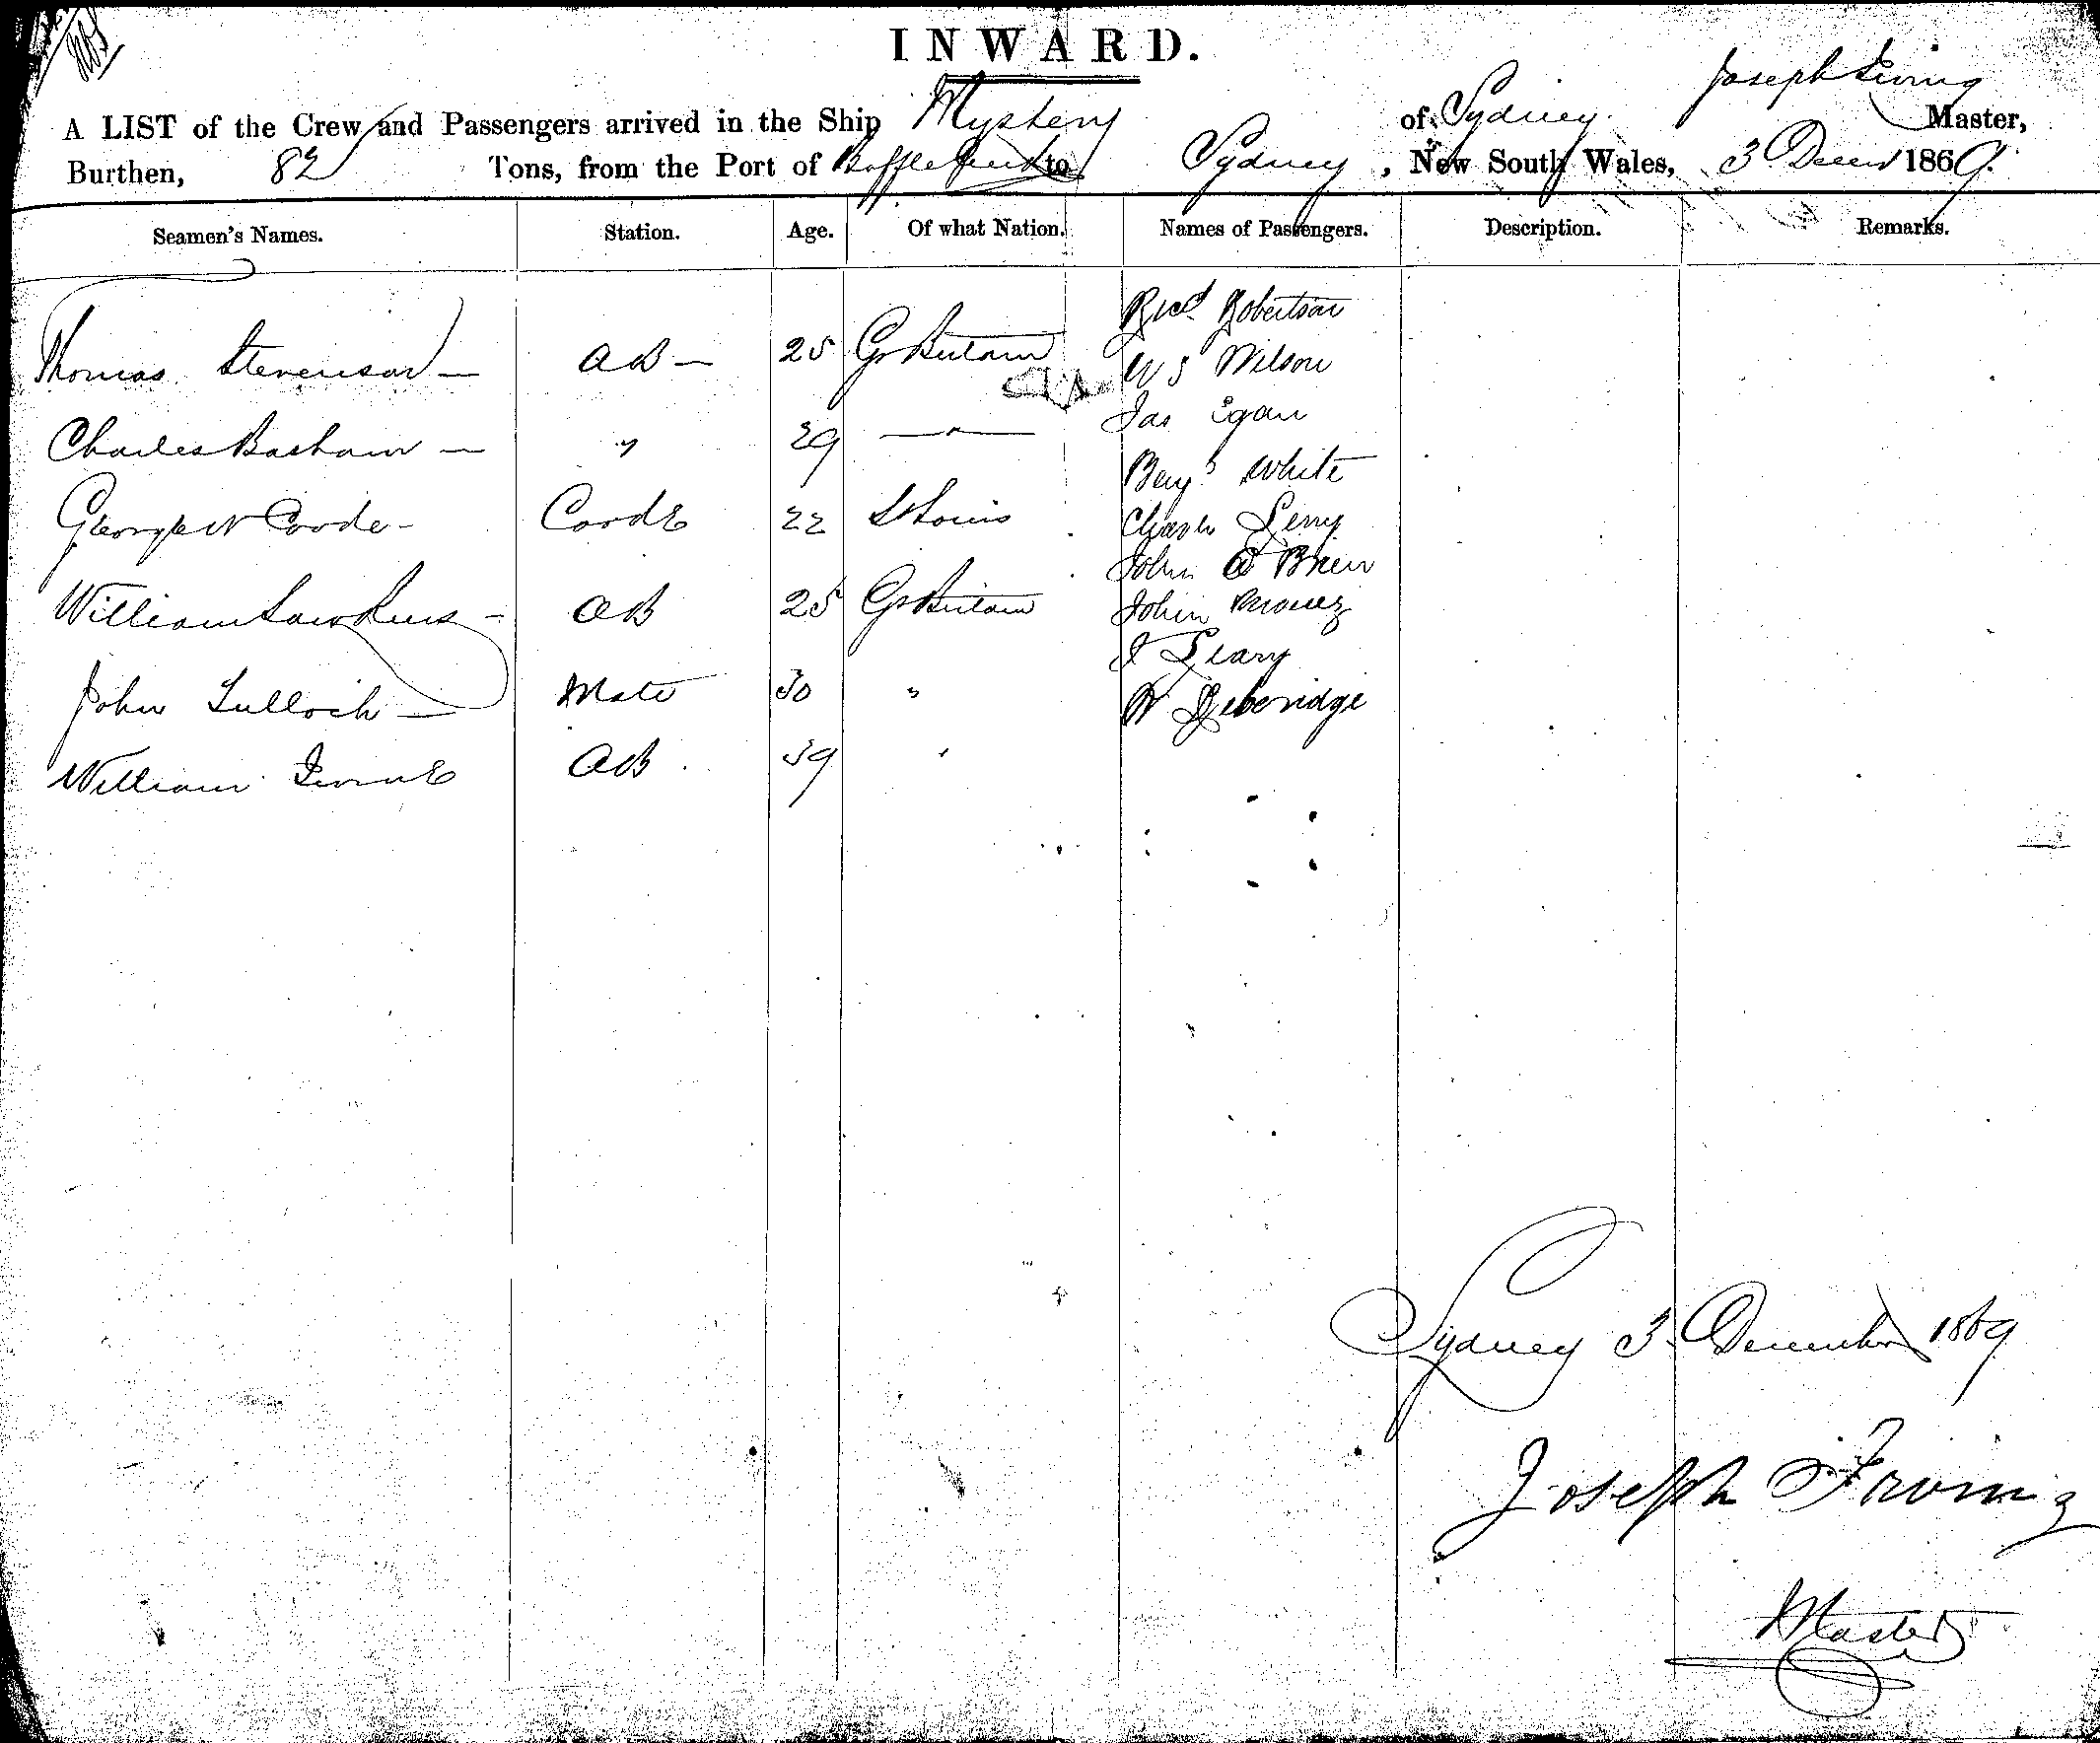 INWARD.
Joseph Irving
A LIST of the Crew and Passengers arrived in the Ship Mystery of Sydney Master,
Burthen, 82 Tons, from the Port of Baffle Creek to Sydney, New South Wales, 3 Decr 1869.
Seamen's Names. Station. Age. Of what Nation. Names of Passengers. Description. Remarks.
Robertson
Thomas Stevenson — AB — 25 Gt Britain
W S Wilson
Jas Egan
Charles Basham — " 29 — " —
Benj White
George W Coode - Cook 22 St Louis
Charles Leny
John O Brien
William Lawkins - AB 25 Gt Britain
John
J Leary
John Tulloch — Mate 30 "
W
William Irvine AB. 39 "
Sydney 3 December 1869
Joseph Irving
Master